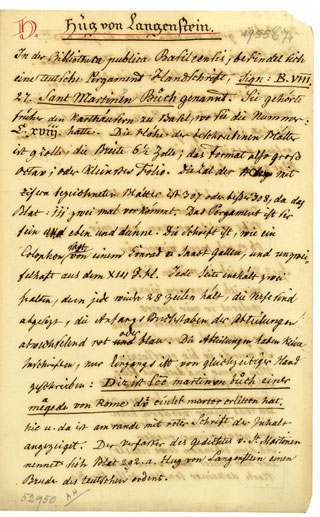 H.
Hug von Langenstein.
19556 76
In der Bibliotheca publica Basileensis, befindet sich
eine teutsche Pergament Handschrift, Sign: B. VIII.
27. Sant Martinen Bůch genannt. Sie gehörte
früher den Karthausern zu Basel, wo sie die Nummer:
E. xviij. hatte. Die Höhe der beschribenen Blätter
ist 9 Zolle; die Breite 6½ Zolle; das Format also groß
octav; oder Kleinster Folio. Die Zal der mit
zifern bezeichneten Blätter ist 307 oder besser 308, da das
Blat iij zwei mal vorkommt. Das Pergament ist ser
fein und eben und dünne. Die Schrift ist, wie ein
Colophon, von einem Conrad v. Sanct Gallen, und unzwei-
felhaft aus dem XIII J. h. Jede Seite enthält zwei
spalten, deren jede wider 28 Zeilen hält, die Verse sind
abgesezt, die Anfangs Buchstaben der Abteilungen
abwechselnd rot oder blau. Die Abteilungen haben keine
Inschriften, nur Eingangs ist von gleichzeitiger Hand
geschrieben: Diz ist sco martinon bůch einer
mägede von Rome dú endet marter erlitten hat,
hie u. da ist am rande mit roter Schrift der Inhalt
angezeiget. Der Verfaßer des Gedichtes v. St. Martinen
nennet sich Blat 292. a. Hug von Langenstein einen
Bruder des teutschen ordens.
52950